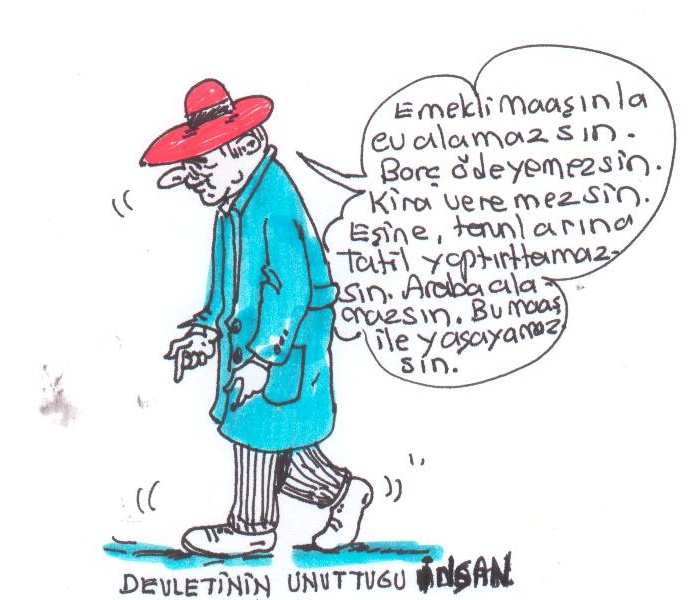 Emekli maaşınla
ev alamazsın.
Borç ödeyemezsin.
Kira veremezsin.
Eşine, torunlarına
Tatil yaptırttamaz-
sın. Araba ala-
mazsın. Bu maaş
ile yaşayamaz
sın.
DEVLETİNİN UNUTTUGU İNSAN